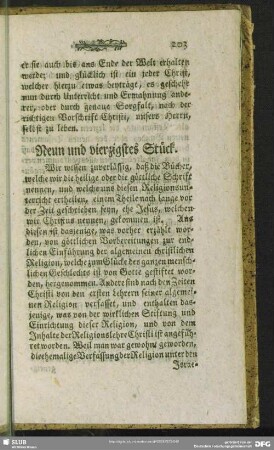 203
er sie auch bis ans Ende der Welt erhalten
werde; und glücklich ist ein jeder Christ,
welcher hierzu etwas beyträgt, es geschehe
nun durch Unterricht und Ermahnung ande-
rer, oder durch genaue Sorgfalt, nach der
richtigen Vorschrift Christi, unsers Herrn,
selbst zu leben.
Neun und vierzigstes Stück.
Wir wissen zuverlässig, daß die Bücher,
welche wir die heilige oder die göttliche Schrift
nennen, und welche uns diesen Religionsun-
terricht ertheilen, einem Theile nach lange vor
der Zeit geschrieben seyn, ehe Jesus, welchen
wir Christus nennen, gekommen ist. Aus
diesen ist dasjenige, was vorher erzählt wor-
den, von göttlichen Vorbereitungen zur end-
lichen Einführung der allgemeinen christlichen
Religion, welche zum Glücke des ganzen mensch-
lichen Geschlechts ist von Gotte gestiftet wor-
den, hergenommen. Andere sind nach den Zeiten
Christi von den ersten Lehrern seiner allgemei-
nen Religion verfasset, und enthalten das-
jenige, was von der wirklichen Stiftung und
Einrichtung dieser Religion, und von dem
Inhalte der Religionslehre Christi ist angefüh-
ret worden. Weil man war gewohnt geworden,
die ehemalige Verfassung der Religion unter den
Israe-
SLUB
DFG